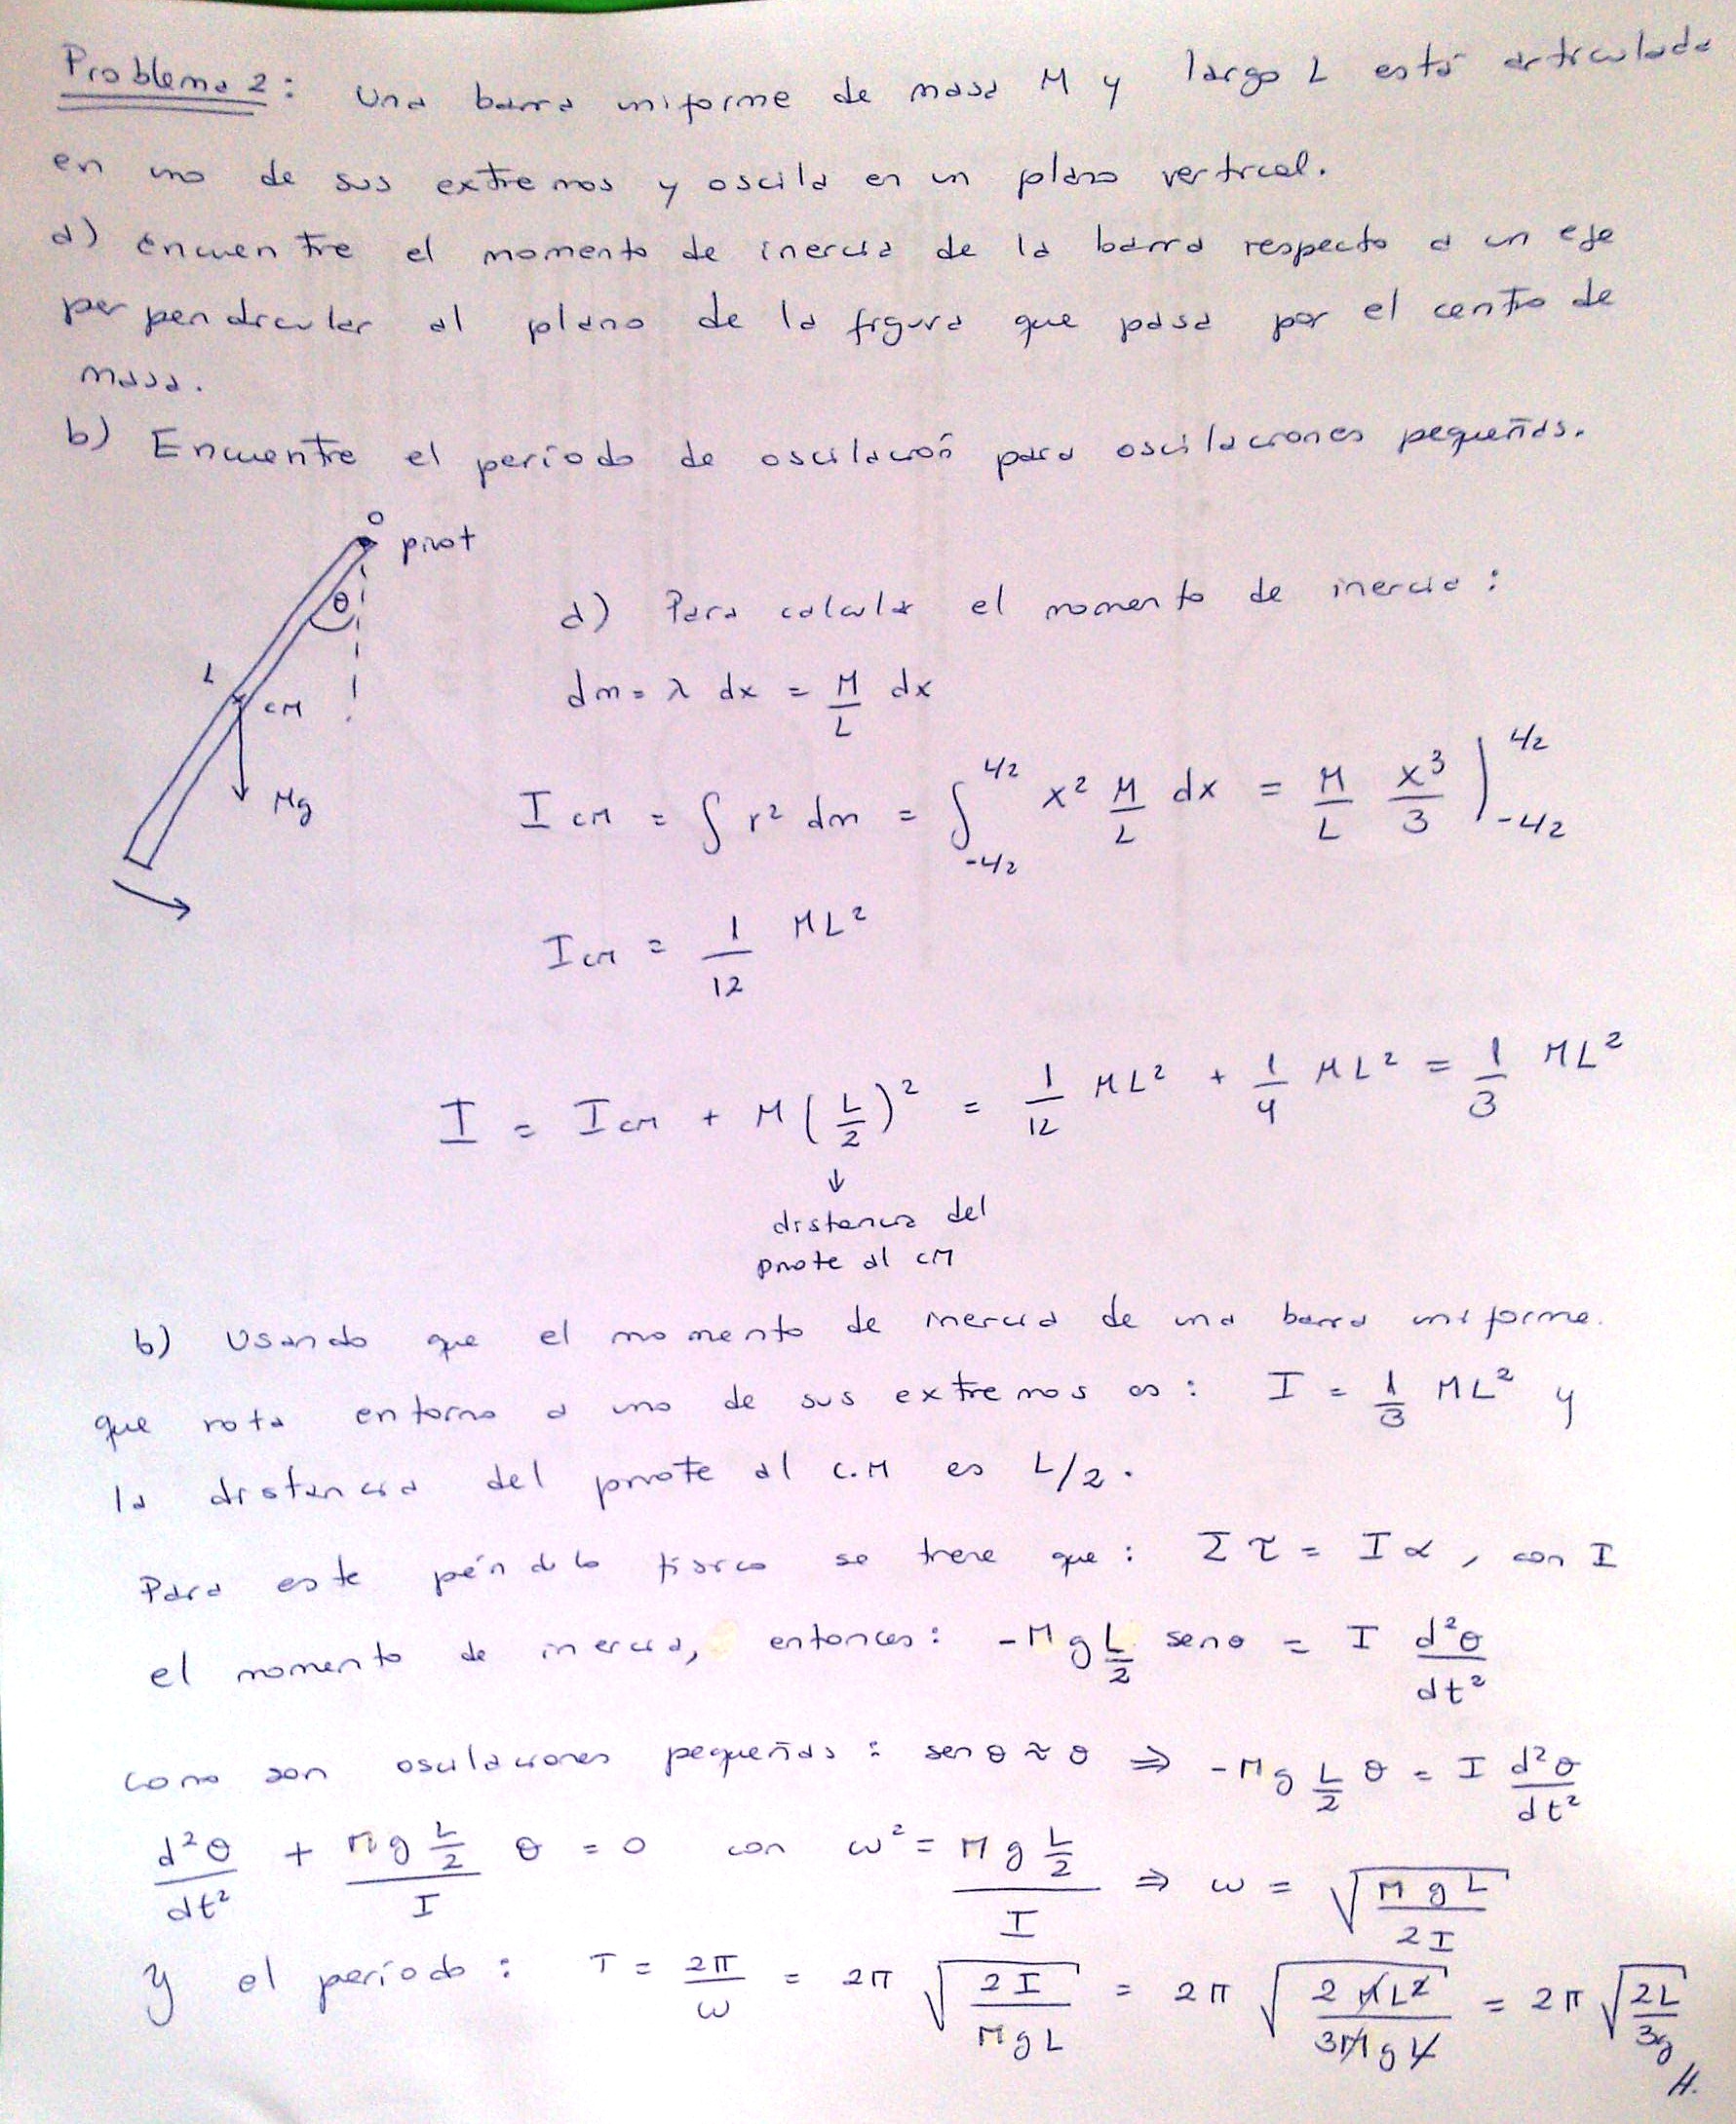 Problema 2: Una barra uniforme de masa M y largo L está articulada
en uno de sus extremos y oscila en un plano vertical.
a) Encuentre el momento de inercia de la barra respecto a un eje
perpendicular al plano de la figura que pasa por el centro de
masa.
b) Encuentre el período de oscilación para oscilaciones pequeñas.
O
pivot
θ
L
CM
Mg
a) Para calcular el momento de inercia:
dm = λ dx = M/L dx
I_CM = ∫ r² dm = ∫_{-L/2}^{L/2} x² M/L dx = M/L x³/3 |_{-L/2}^{L/2}
I_CM = 1/12 ML²
I = I_CM + M(L/2)² = 1/12 ML² + 1/4 ML² = 1/3 ML²
↓
distancia del
pivote al CM
b) Usando que el momento de inercia de una barra uniforme.
que rota entorno a uno de sus extremos es: I = 1/3 ML² y
la distancia del pivote al C.M es L/2.
Para este péndulo físico se tiene que: Στ = Iα, con I
el momento de inercia, entonces: -Mg L/2 senθ = I d²θ/dt²
Como son oscilaciones pequeñas: senθ ≈ θ ⇒ -Mg L/2 θ = I d²θ/dt²
d²θ/dt² + Mg L/2 / I θ = 0 con ω² = Mg L/2 / I ⇒ ω = √(MgL/2I)
y el período: T = 2π/ω = 2π √(2I/MgL) = 2π √(2ML²/3MgL) = 2π √(2L/3g)